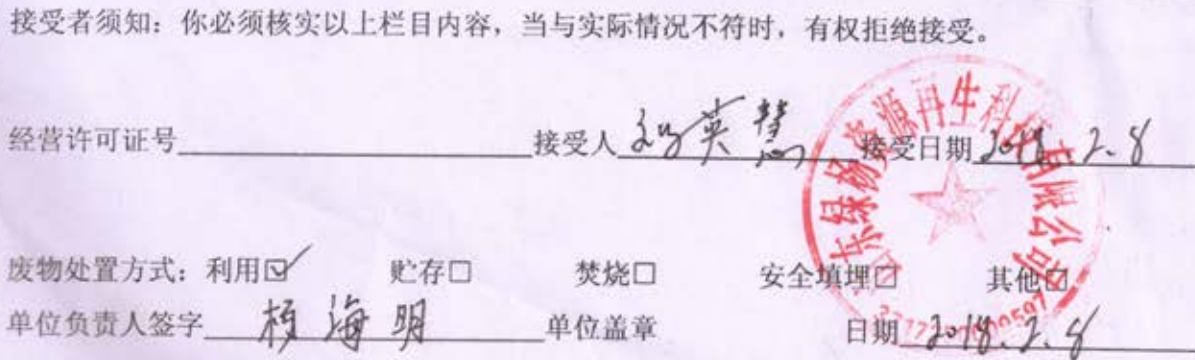 接受者须知：你必须核实以上栏目内容，当与实际情况不符时，有权拒绝接受。
经营许可证号 接受人 英慧 接受日期 2018.2.8
山东绿杨资源再生科技有限公司
废物处置方式：利用☑ 贮存□ 焚烧□ 安全填埋□ 其他□
单位负责人签字 杨海明 单位盖章 日期 2018.2.8